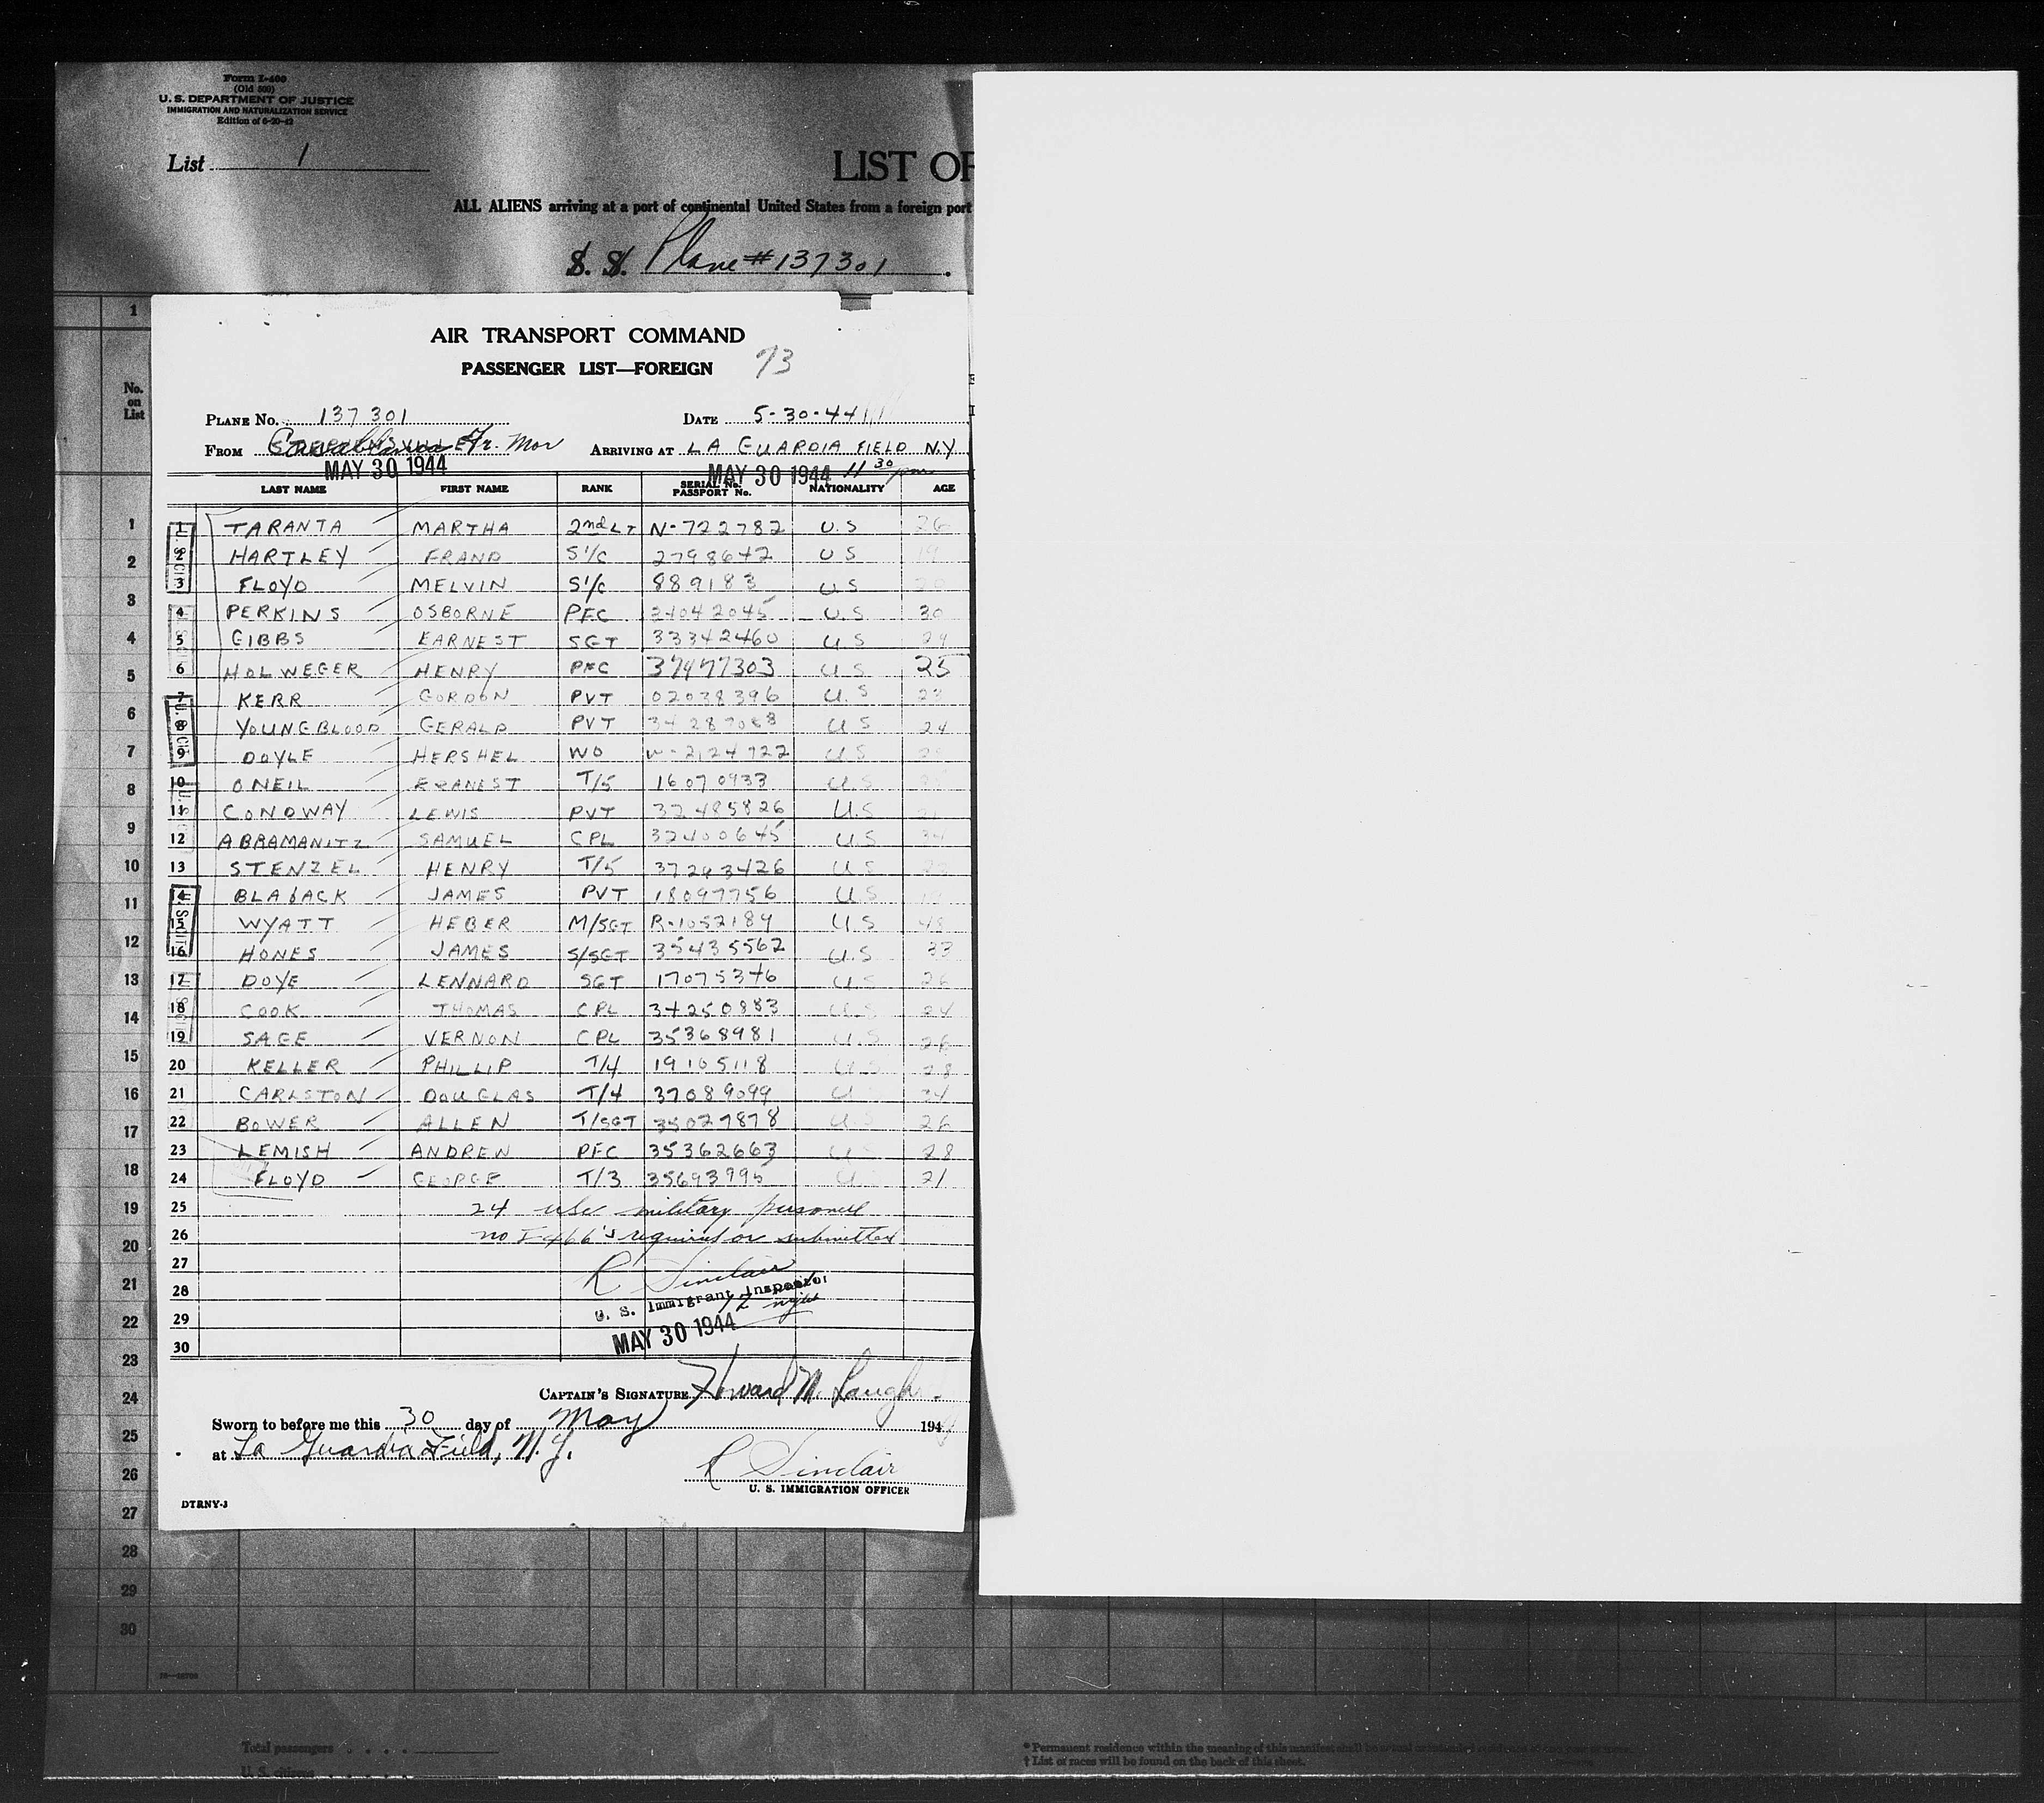 Form I-400
(Old 500)
U. S. DEPARTMENT OF JUSTICE
IMMIGRATION AND NATURALIZATION SERVICE
Edition of 6-20-42
List 1
LIST OF
ALL ALIENS arriving at a port of continental United States from a foreign port
S. S. Plane # 137301
AIR TRANSPORT COMMAND
PASSENGER LIST—FOREIGN 73
PLANE No. 137301 DATE 5-30-44
FROM Casablanca Fr. Mor ARRIVING AT LA GUARDIA FIELD N.Y
MAY 30 1944 MAY 30 1944 11 30 pm
No. on List
LAST NAME FIRST NAME RANK SERIAL No. PASSPORT No. NATIONALITY AGE
1 TARANTA MARTHA 2nd LT N-722782 U.S 26
2 HARTLEY FRAND S1/C 2798642 U S 19
3 FLOYD MELVIN S1/C 889183 U S 20
4 PERKINS OSBORNE PFC 34042045 U.S 30
5 GIBBS EARNEST SGT 33342460 U S 29
6 HOLWEGER HENRY PFC 37477303 U S 25
7 KERR GORDON PVT 02038396 U.S 23
8 YOUNGBLOOD GERALD PVT 34287068 U S 24
9 DOYLE HERSHEL WO W-2124722 U S
10 ONEIL ERANEST T/5 16070933 U.S
11 CONOWAY LEWIS PVT 32485826 U.S
12 ABRAMANITZ SAMUEL CPL 32400645 U.S 34
13 STENZEL HENRY T/5 37263426 U S 23
14 BLAJACK JAMES PVT 18097756 U S
15 WYATT HEBER M/SGT R-1052184 U.S 48
16 HONES JAMES S/SGT 35435562 U.S 33
17 DOYE LENNARD SGT 17075376 U S 26
18 COOK THOMAS CPL 34250883 U.S 24
19 SAGE VERNON CPL 35368981 U.S 26
20 KELLER PHILLIP T/4 19105118 U S 28
21 CARLSTON DOUGLAS T/4 37089099 U 34
22 BOWER ALLEN T/SGT 35027878 U. 26
23 LEMISH ANDREW PFC 35362663 U S 28
24 FLOYD GEORGE T/3 35693795 U 21
25 24 usc military personnel
26 no I-466's required or submitted
27 R Sinclair
28 U. S. Immigrant Inspector
29 MAY 30 1944
30
CAPTAIN'S SIGNATURE Howard M. Laugh
Sworn to before me this 30 day of May 194
at La Guardia Field, N.Y.
R Sinclair
U. S. IMMIGRATION OFFICER
DTRNY-3
Total passengers
U. S. citizens
* Permanent residence within the meaning of this manifest shall be
† List of races will be found on the back of this sheet.